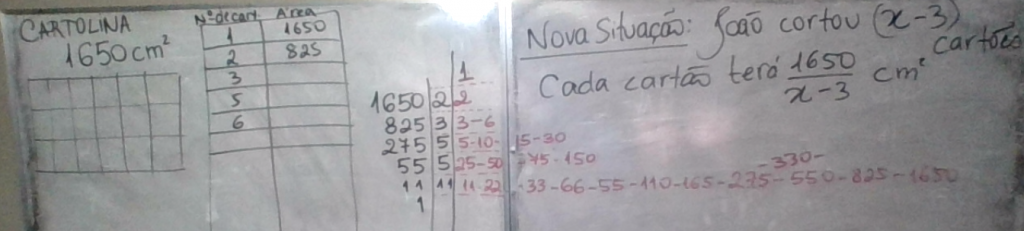 CARTOLINA
1650 cm²
Nº de cart. Área
1 1650
2 825
3
5
6
1
1650 2 2
825 3 3-6
275 5 5-10-15-30
55 5 25-50-75-150
11 11 11-22-33-66-55-110-165-275-550-825-1650
-330-
1
Nova Situação: João cortou (x-3)
cartões
Cada cartão terá 1650/x-3 cm²